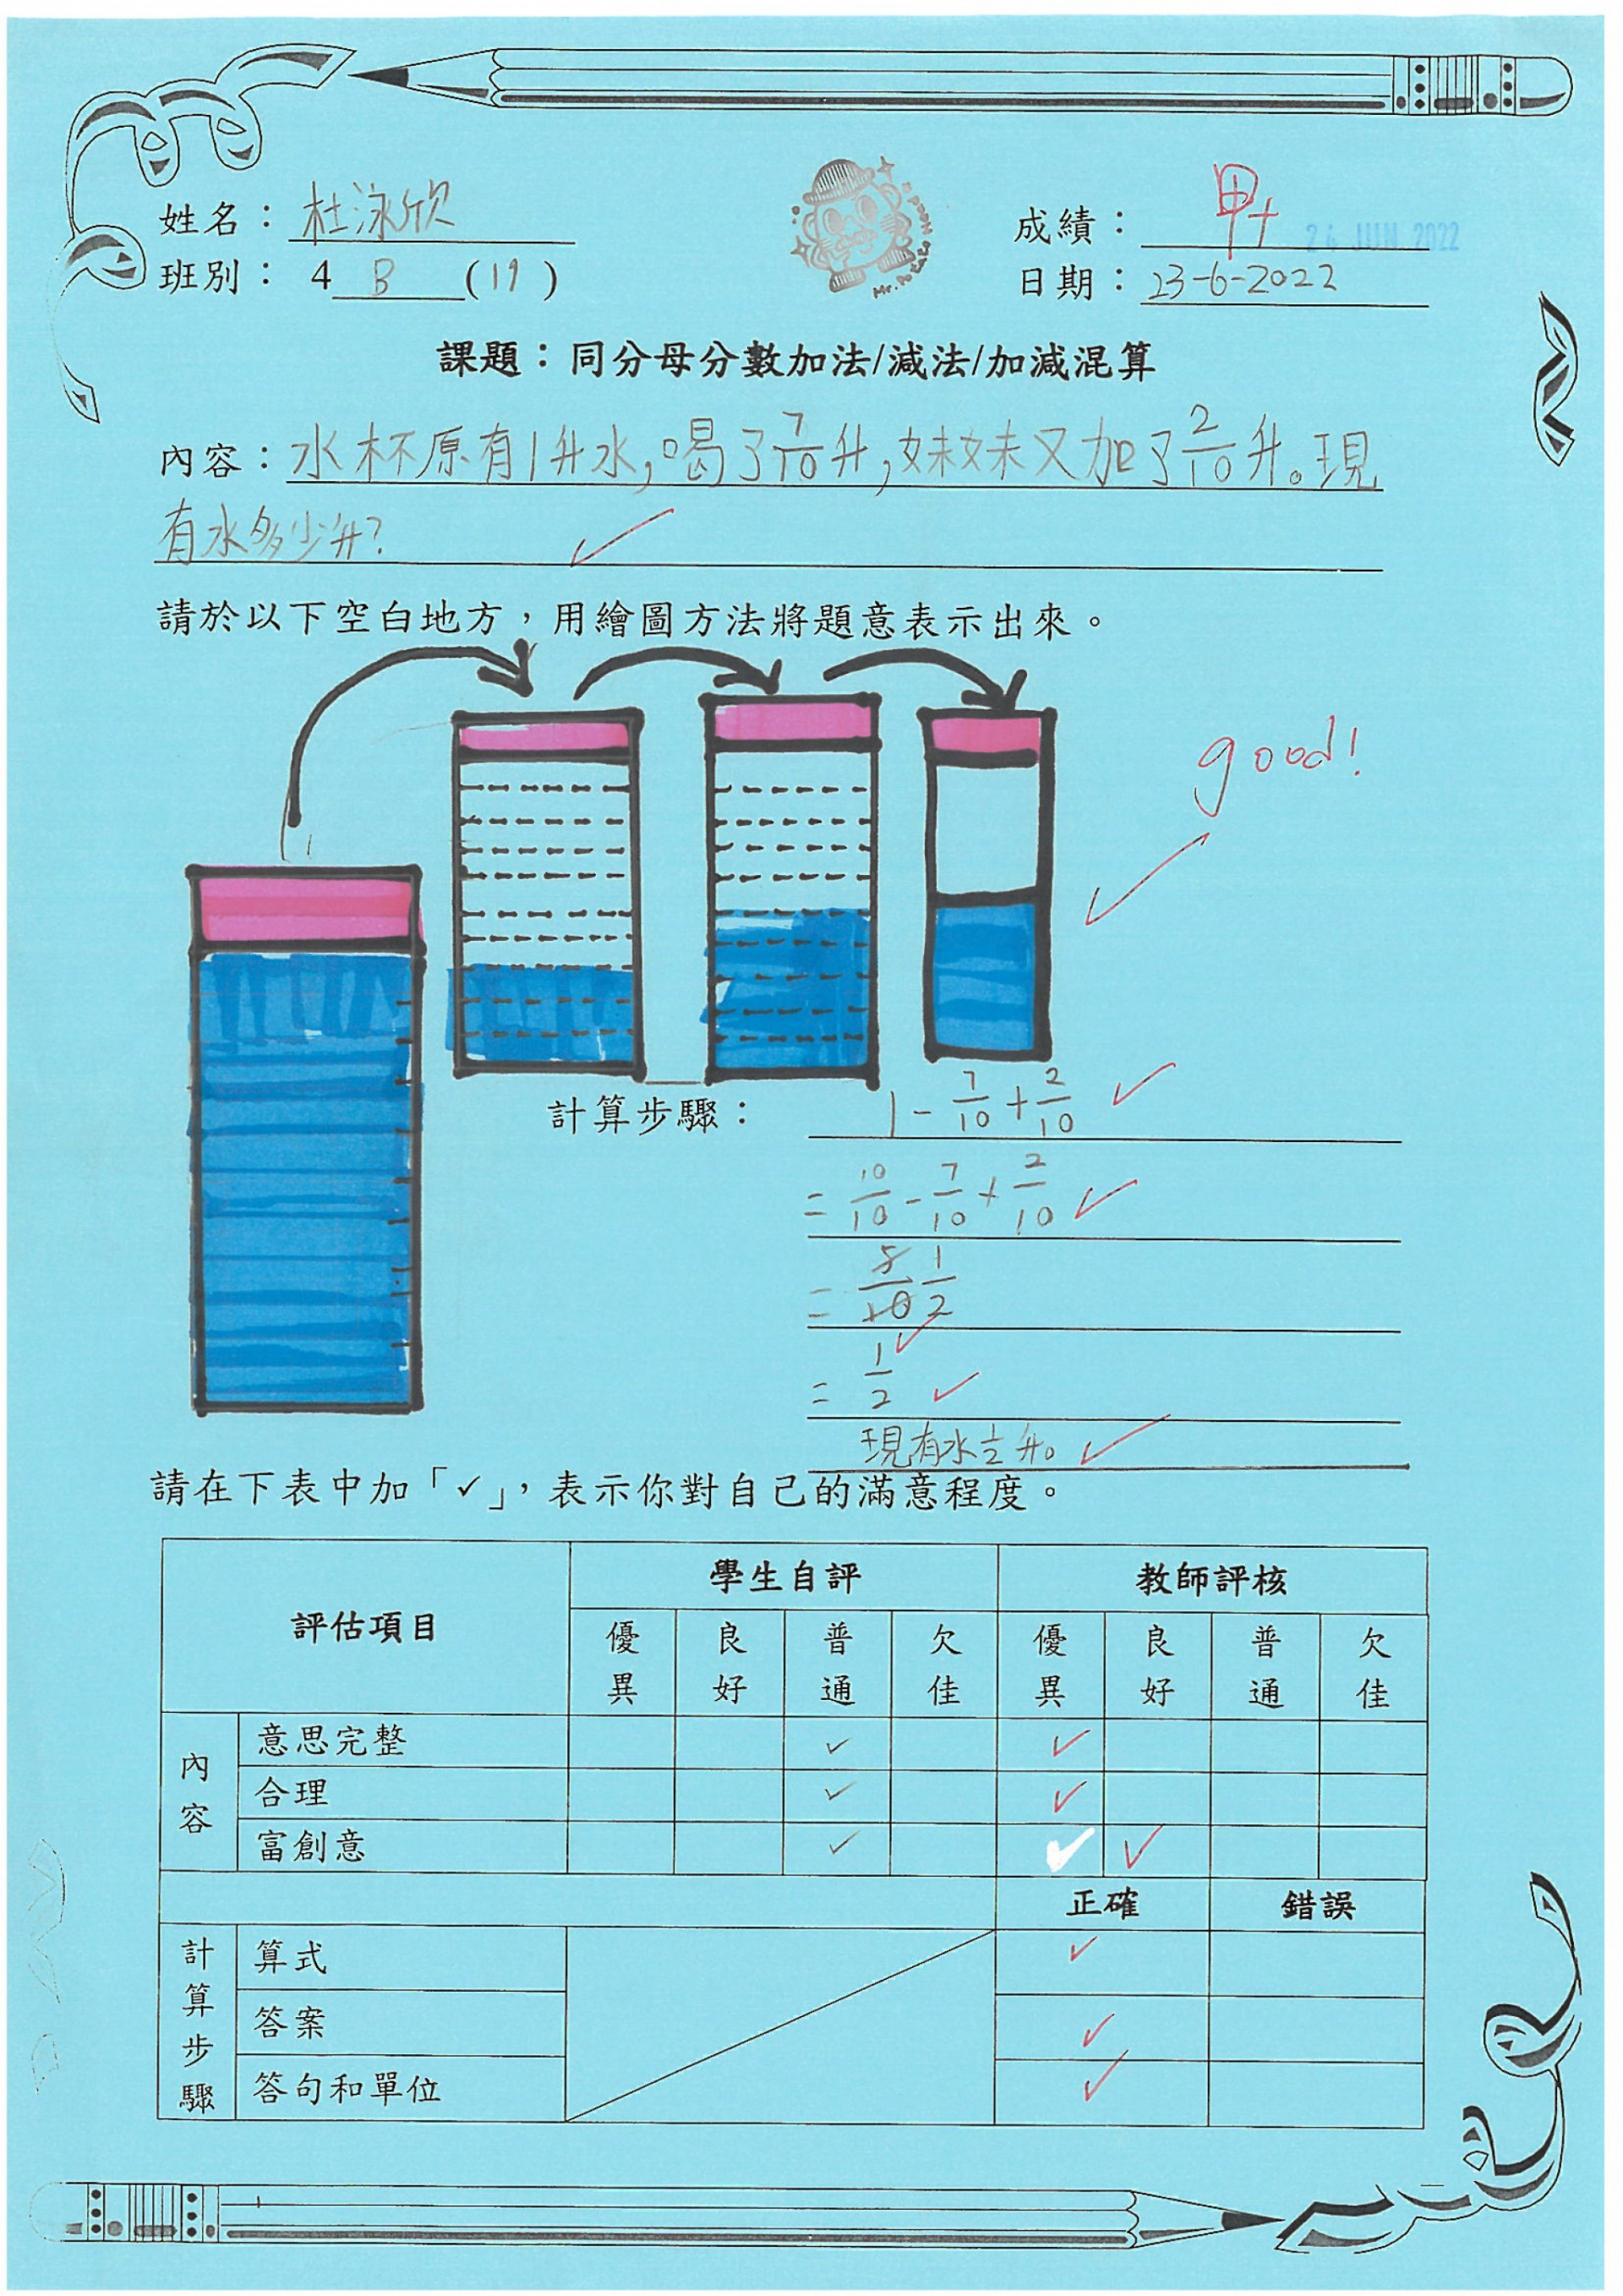 姓名：杜泳欣
成績：甲+ 26 JUN 2022
班別：4 B (19)
日期：23-6-2022
Mr. Potato Moon
課題：同分母分數加法/減法/加減混算
內容：水杯原有1升水，喝了7/10升，妹妹又加了2/10升。現
有水多少升？
請於以下空白地方，用繪圖方法將題意表示出來。
good!
計算步驟：1 - 7/10 + 2/10
= 10/10 - 7/10 + 2/10
= 5/10 1/2
= 1/2
現有水1/2升。
請在下表中加「✓」，表示你對自己的滿意程度。
評估項目 學生自評 教師評核
優異 良好 普通 欠佳 優異 良好 普通 欠佳
內容
意思完整 ✓ ✓
合理 ✓ ✓
富創意 ✓ ✓ ✓
正確 錯誤
計算步驟
算式 ✓
答案 ✓
答句和單位 ✓